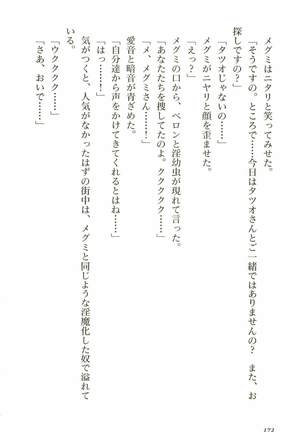 メグミはニタリと笑ってみせた。
「そうですの。ところで……今日はタツオさんとご一緒ではありませんの？　また、お
探しですの？」
「タツオじゃないの……」
メグミがニヤリと顔を歪ませた。
「えっ？」
メグミの口から、ベロンと淫幼虫が現れて言った。
「あなたたちを捜してたのよ。ククククク……」
「メ、メグミさん……！」
愛音と暗音が青ざめた。
「自分達から声をかけてきてくれるとはね……」
気がつくと、人気がなかったはずの街中は、メグミと同じような淫魔化した奴で溢れて
いる。
「ウククククク……」
「さあ、おいで……」
173